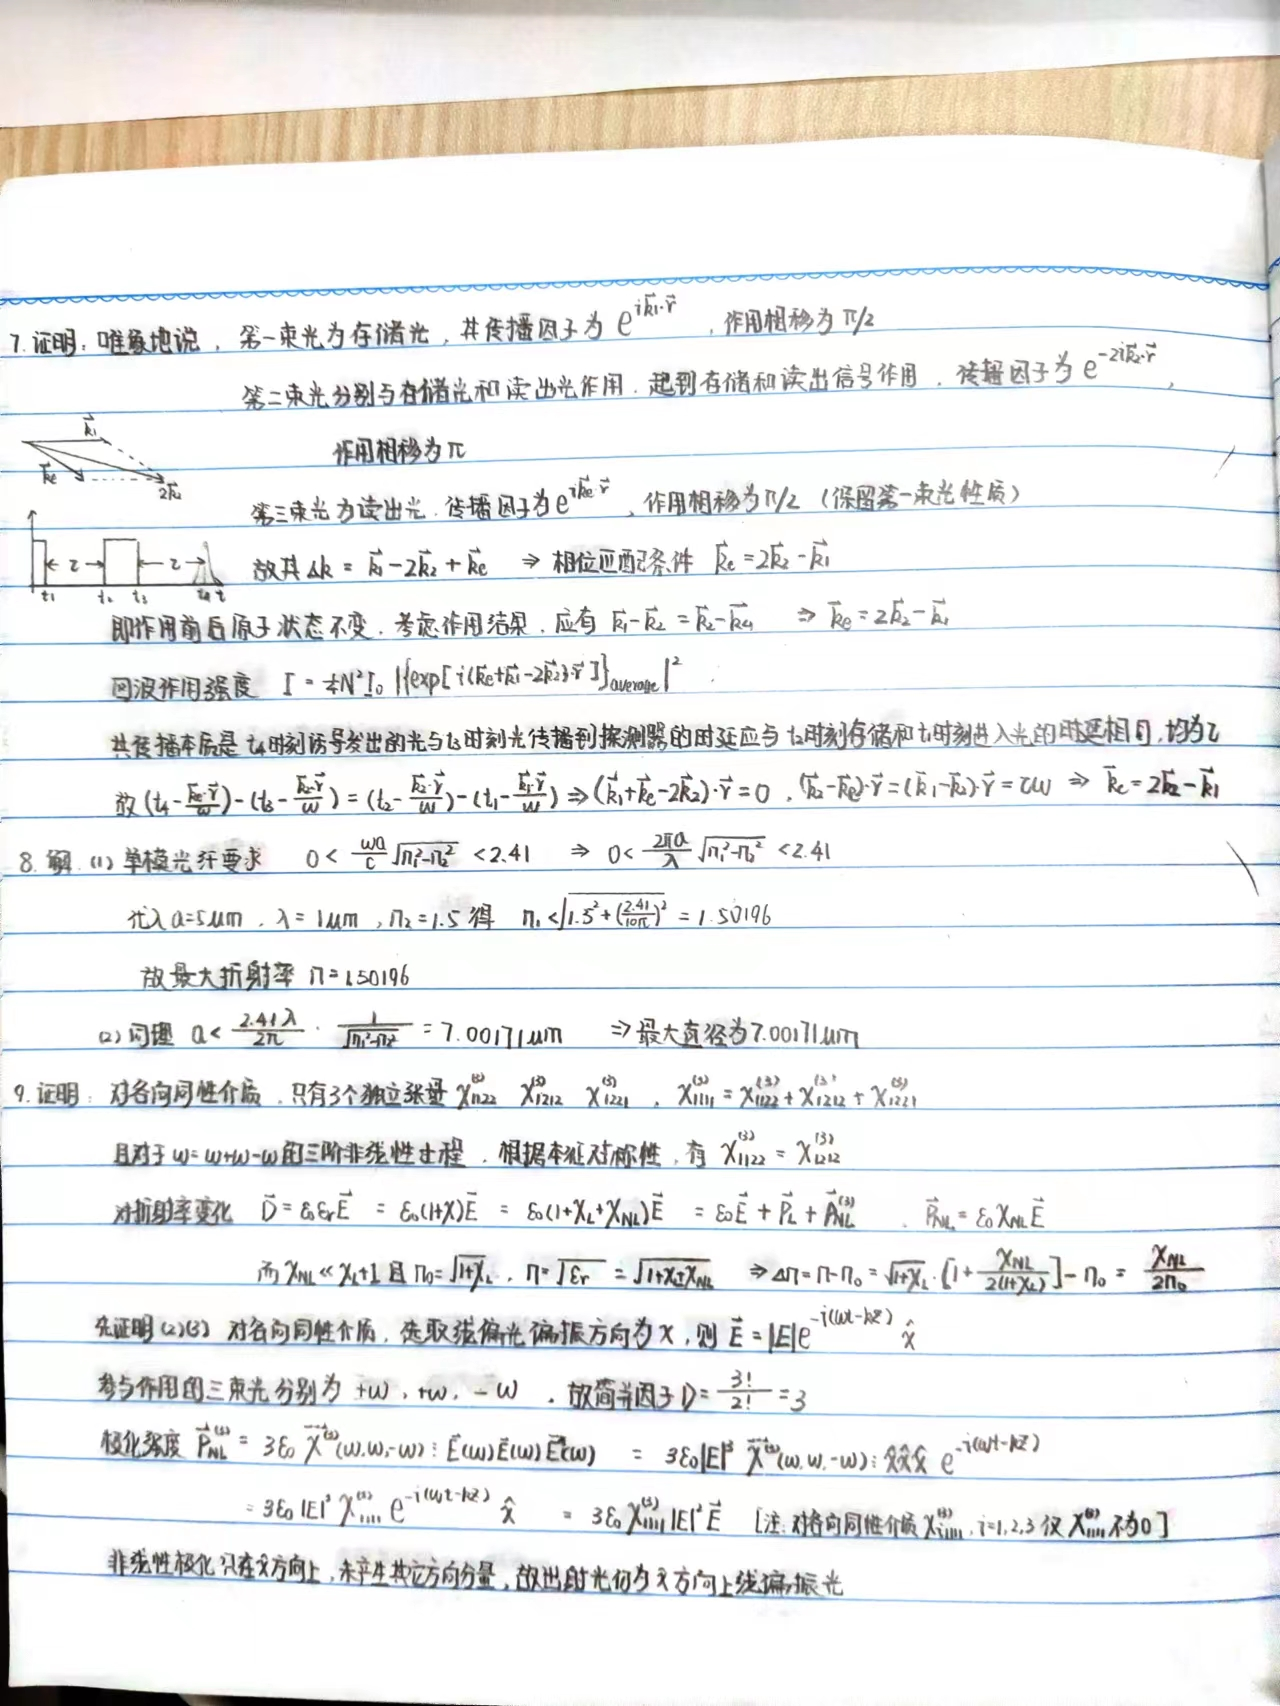 7.证明:唯象地说, 第一束光为存储光,其传播因子为 e^{i\vec{k}_1·\vec{r}} , 作用相移为 π/2
第二束光分别与存储光和读出光作用.起到存储和读出信号作用.传播因子为 e^{-2i\vec{k}_2·\vec{r}},
作用相移为π
第三束光为读出光.传播因子为 e^{i\vec{k}_e·\vec{r}} ,作用相移为π/2 (保留第一束光性质)
\vec{k}_1
\vec{k}_e
2\vec{k}_2
τ τ
t_1 t_2 t_3 t_4 t
故其 Δk = \vec{k}_1-2\vec{k}_2+\vec{k}_e ⇒ 相位匹配条件 \vec{k}_e=2\vec{k}_2-\vec{k}_1
即作用前后原子状态不变.考虑作用结果.应有 \vec{k}_1-\vec{k}_2=\vec{k}_2-\vec{k}_e ⇒ \vec{k}_e=2\vec{k}_2-\vec{k}_1
回波作用强度 I=¼N²I_0 |{exp[i(\vec{k}_e+\vec{k}_1-2\vec{k}_2)·\vec{r}]}_{average}|²
其传播本质是 t_4时刻诱导发出的光与t_3时刻光传播到探测器的时延应与 t_2时刻存储和t_1时刻进入光的时延相同,均为τ
故 (t_4-\frac{\vec{k}_e·\vec{r}}{w})-(t_3-\frac{\vec{k}_2·\vec{r}}{w})=(t_2-\frac{\vec{k}_2·\vec{r}}{w})-(t_1-\frac{\vec{k}_1·\vec{r}}{w}) ⇒ (\vec{k}_1+\vec{k}_e-2\vec{k}_2)·\vec{r}=0 , (\vec{k}_2-\vec{k}_e)·\vec{r}=(\vec{k}_1-\vec{k}_2)·\vec{r}=τw ⇒ \vec{k}_e=2\vec{k}_2-\vec{k}_1
8.解.(1)单模光纤要求 0<\frac{wa}{c}\sqrt{n_1²-n_2²}<2.41 ⇒ 0<\frac{2πa}{λ}\sqrt{n_1²-n_2²}<2.41
代入 a=5μm, λ=1μm, n_2=1.5 得 n_1<\sqrt{1.5²+(\frac{2.41}{10π})²}=1.50196
故最大折射率 n=1.50196
(2)同理 a<\frac{2.41λ}{2π}·\frac{1}{\sqrt{n_1²-n_2²}}=7.00171μm ⇒最大直径为7.00171μm
9.证明: 对各向同性介质,只有3个独立张量 χ^{(3)}_{1122} χ^{(3)}_{1212} χ^{(3)}_{1221}, χ^{(3)}_{1111}=χ^{(3)}_{1122}+χ^{(3)}_{1212}+χ^{(3)}_{1221}
且对于 w=w+w-w的三阶非线性过程.根据本征对称性,有 χ^{(3)}_{1122}=χ^{(3)}_{1212}
对折射率变化 \vec{D}=ε_0ε_r\vec{E} =ε_0(1+χ)\vec{E} =ε_0(1+χ_L+χ_{NL})\vec{E} =ε_0\vec{E}+\vec{P}_L+\vec{P}^{(3)}_{NL} , \vec{P}_{NL}=ε_0χ_{NL}\vec{E}
而 χ_{NL}≪χ_L+1且 n_0=\sqrt{1+χ_L}, n=\sqrt{ε_r}=\sqrt{1+χ_L+χ_{NL}} ⇒Δn=n-n_0=\sqrt{1+χ_L}·[1+\frac{χ_{NL}}{2(1+χ_L)}]-n_0=\frac{χ_{NL}}{2n_0}
先证明(2)(3) 对各向同性介质,选取线偏光偏振方向为x,则 \vec{E}=|E|e^{-i(wt-kz)}\hat{x}
参与作用的三束光分别为 +w, +w, -w .故简并因子 D=\frac{3!}{2!}=3
极化强度 \vec{P}^{(3)}_{NL}=3ε_0 χ^{(3)}(w,w,-w)⋮\vec{E}(w)\vec{E}(w)\vec{E}^*(w) =3ε_0|E|³ χ^{(3)}(w,w,-w)⋮\hat{x}\hat{x}\hat{x} e^{-i(wt-kz)}
=3ε_0|E|³χ^{(3)}_{1111}e^{-i(wt-kz)}\hat{x} =3ε_0χ^{(3)}_{1111}|E|²\vec{E} [注:对各向同性介质χ^{(3)}_{i111},i=1,2,3仅χ^{(3)}_{1111}不为0]
非线性极化只在\hat{x}方向上,未产生其它方向分量,故出射光仍为\hat{x}方向上线偏振光